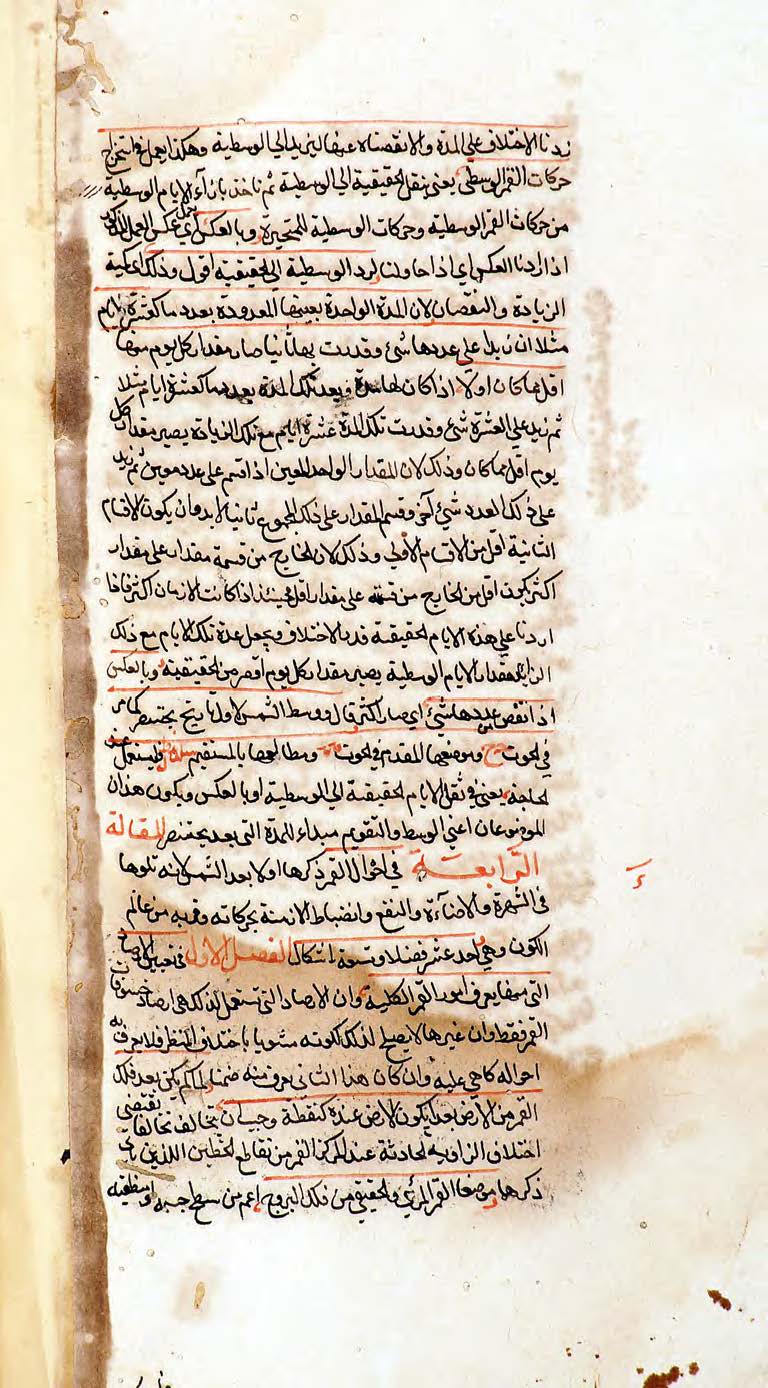 زدنا الاختلاف علي المدة والا نقصناه عنها ليزيد الي الوسطية وهكذا يعمل في استخراج
حركات القمر الوسطي يعني ينقل الحقيقية الي الوسطية ثم ناخذ بازآء الايام الوسطية
من حركات القمر الوسطية وحركات الوسطية للمتحيرة وبالعكس اي عكس العمل المذكور
اذا اردنا العكس اي اذا حاولنا رد الوسطية الي الحقيقية اقول وذلك اي كمية
الزيادة والنقصان لان المدة الواحدة بعينها المعدودة بعدد ما كعشرة ايام
مثلا ان زيد علي عددها شئ وقدرت بها ثانيا صار مقدار كل يوم منها
اقل مما كان اولا اذا كان لها مدة وبعد تلك المدة بعدد ما كعشرة ايام مثلا
ثم زيد علي العشرة شئ وقدرت تلك المدة عشرة ايام مع تلك الزيادة يصير مقدار كل
يوم اقل مما كان وذلك لان المقدار الواحد المعين اذا قسم علي عدد معين ثم زيد
علي ذلك العدد شئ آخر وقسم المقدار علي ذلك المجموع ثانيا لابد وان يكون الاقسام
الثانية اقل من الاقسام الاولي وذلك لان الخارج من قسمة مقدار علي مقدار
اكثر يكون اقل من الخارج من قسمته علي مقدار اقل فحينئذ اذا كانت الازمان اكثر فاذا
اردنا علي هذه الايام الحقيقية قدر الاختلاف ويجعل عدة تلك الايام مع ذلك
الزايد مقدار الايام الوسطية يصير مقدار كل يوم اقصر من الحقيقية وبالعكس
اذا نقص عن عددها شئ اي صار اكثر قال ووسط الشمس لاول تاريخ بختنصر كما مر
في الحوت وموضعها المقدم في الحوت ومطالعها بالمستقيم فليستعمل عند
الحاجة يعني في نقل الايام الحقيقية الي الوسطية او بالعكس ويكون هذان
الموضوعان اعني الوسط والتقويم مبداء للمدة التي بعد بختنصر المقالة
الرابعة في احوال القمر ذكرها اولا بعد الشمس لانه تلوها
في الشهرة والاضآءة والنفع وانضباط الازمنة بحركاته وقربه من عالم
الكون وهي احد عشر فصلا وتسعة اشكال الفصل الاول في تعيين الارصاد
التي منها يعرف امور القمر الكلية وان الارصاد التي تستعمل لذلك هي ارصاد خسوفات
القمر فقط وان غيرها لا يصلح لذلك لكونه مشوبا باختلاف المنظر فلا يعرف به
احواله كما هي عليه وان كان هذا الثاني يعرف منه ضمنا لما لم يكن بعد فلك
القمر من الارض بعدا يكون الارض عنده كنقطة وجب ان تخالف تخالفا يقتضي
اختلاف الزاوية الحادثة عند مركز القمر من تقاطع الخطين اللذين
ذكرهما موضعا القمر المرئي والحقيقي من فلك البروج اعم من سطح جسمه او منطقته